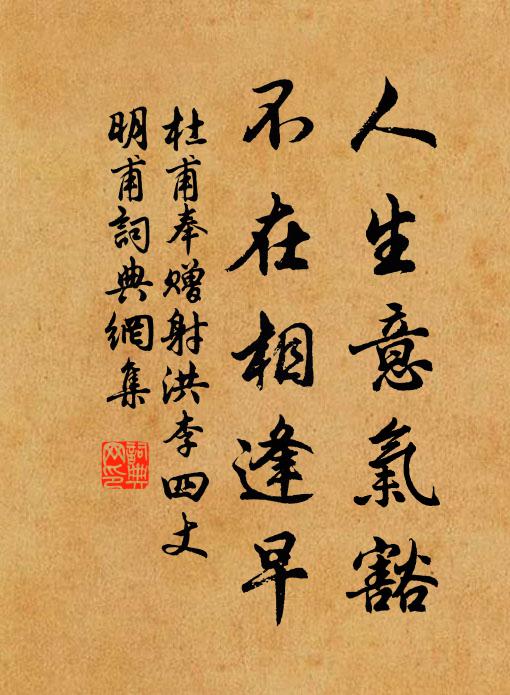 人生意氣豁
不在相逢早
杜甫奉贈射洪李四丈
明甫詞典網集
詞典網印